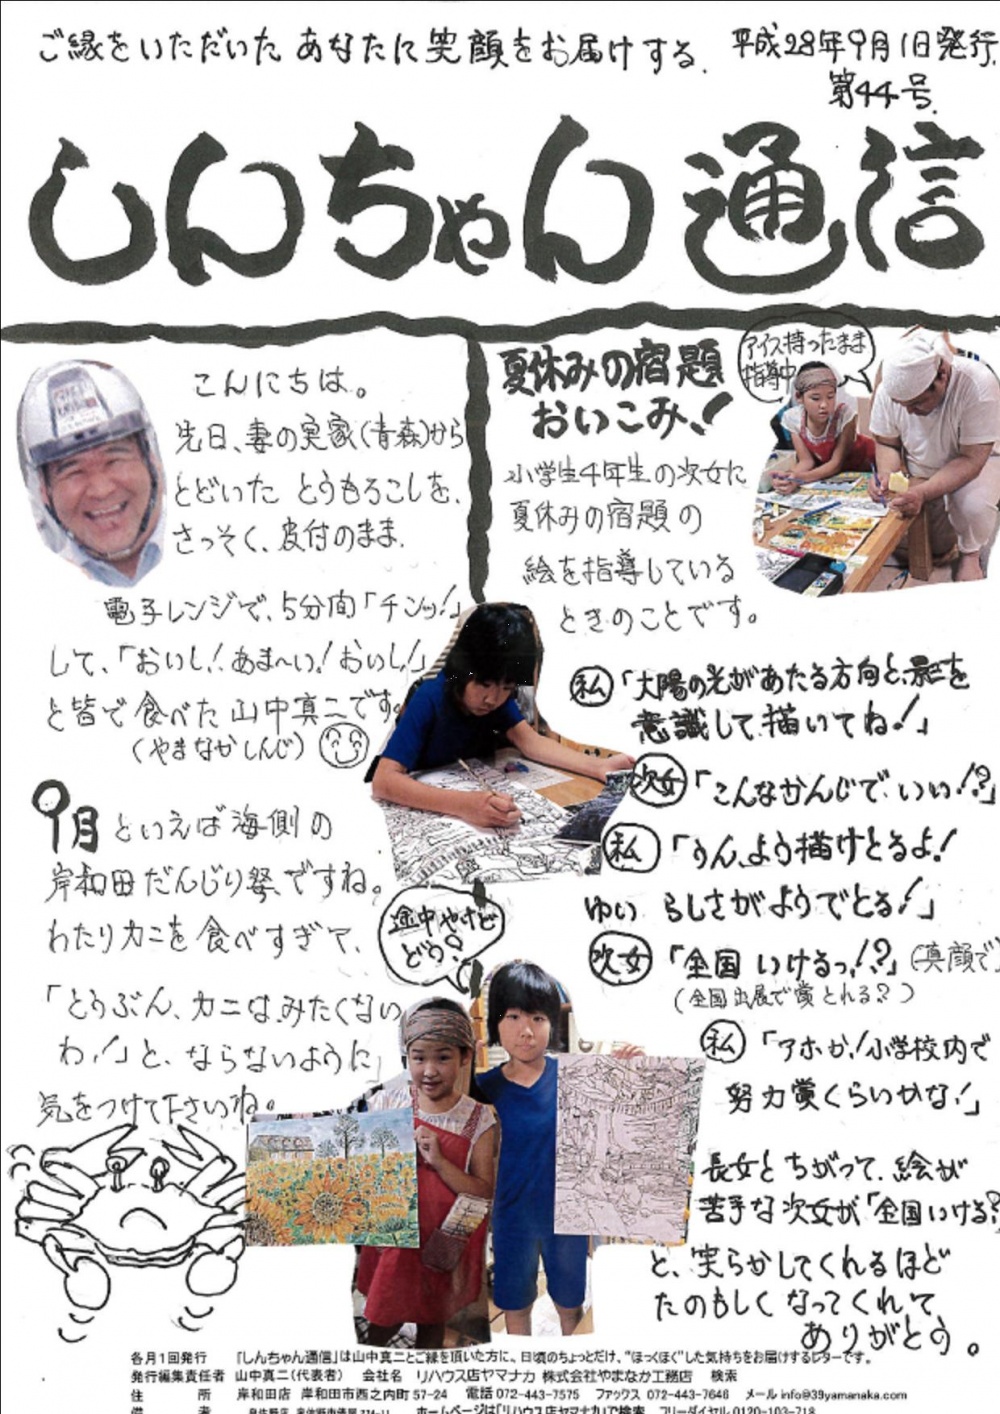 ご縁をいただいた あなたに 笑顔をお届けする.
平成28年9月1日発行.
第44号.
しんちゃん通信
こんにちは。
先日、妻の実家(青森)から
とどいた とうもろこしを、
さっそく、皮付のまま.
電子レンジで、5分間「チンッ!」
して、「おいし!あま〜い!おいし!」
と皆で食べた山中真二です。
(やまなかしんじ)
9月といえば海側の
岸和田だんじり祭ですね。
わたりカニを食べすぎて、
「とうぶん、カニは、みたくない
わ!」と、ならないように」
気をつけて下さいね。
夏休みの宿題
おいこみ!
アイス持ったまま
指導中
小学生4年生の次女に
夏休みの宿題の
絵を指導している
ときのことです。
私「太陽の光があたる方向と、影を
意識して描いてね!」
次女「こんなかんじで、いい!?」
私「うん、よう描けとるよ!
ゆい らしさがようでとる!」
途中やけど
どう?
次女「全国 いけるっ!?」(真顔で)
(全国出展で賞とれる?)
私「アホか!小学校内で
努力賞くらいかな!」
長女とちがって、絵が
苦手な次女が「全国いける?
と、笑らかしてくれるほど
たのもしくなってくれて
ありがとう。
各月1回発行 「しんちゃん通信」は山中真二とご縁を頂いた方に、日頃のちょっとだけ、“ほっくほく”した気持ちをお届けするレターです。
発行編集責任者 山中真二(代表者) 会社名 リハウス店ヤマナカ 株式会社やまなか工務店 検索
住 所 岸和田店 岸和田市西之内町57-24 電話072-443-7575 ファックス 072-443-7646 メール info@39yamanaka.com
備 考 ホームページは「リハウス店ヤマナカ」で検索 フリーダイヤル 0120-103-718